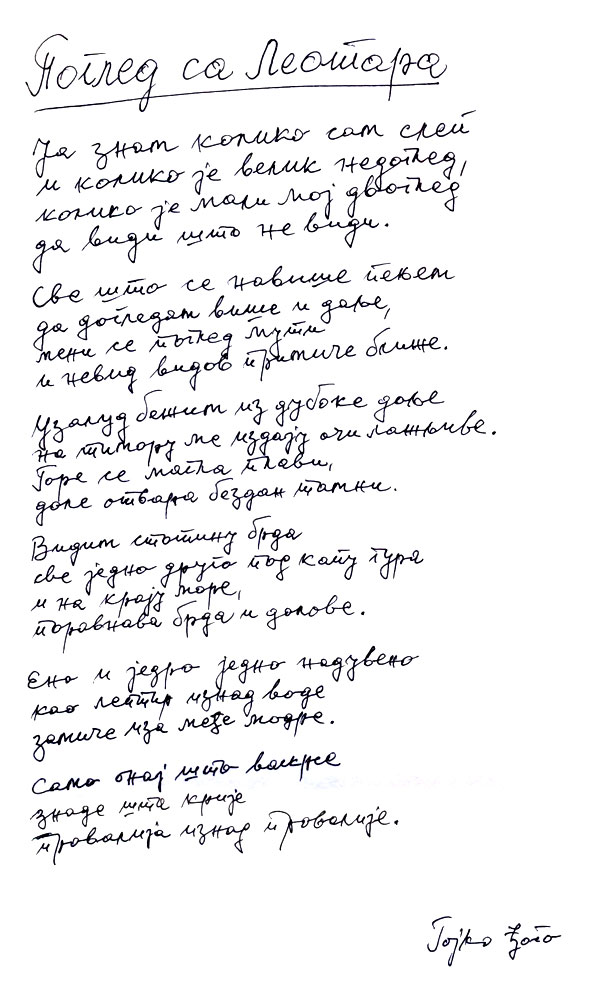 Поглед са Леотара
Ја знам колико сам слеп
и колико је велик недоглед,
колико је мали мој двоглед
да види што не види.
Све што се навише пењем
да догледам више и даље,
мени се поглед мути
и невид видов примиче ближе.
Узалуд бежим из дубоке доље
на тимору ме издају очи лажљиве.
Горе се магла плави,
доле отвара бездан тамни.
Видим стотину брда
све једно друго под капу тура
и на крају море,
поравнава брда и долове.
Ено и једро једно надувено
као лептир изнад воде
замиче иза међе модре.
Само онај што васкрсе
знаде шта крије
провалија изнад провалије.
Гојко Ђого